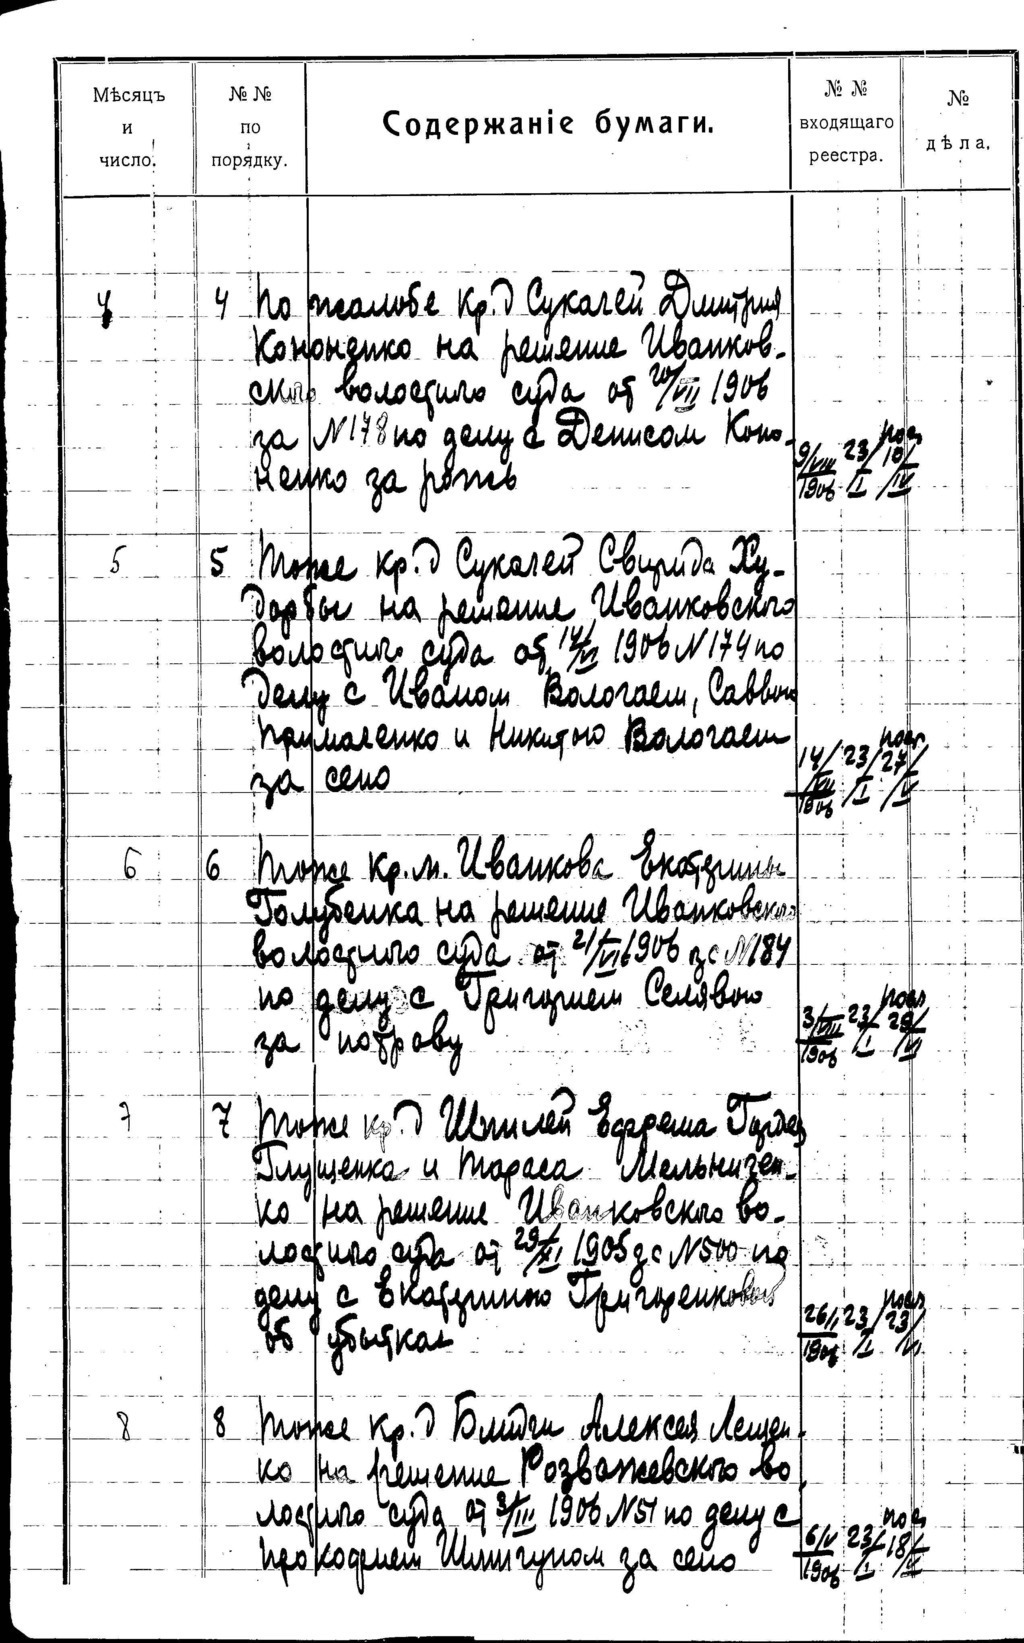 Мѣсяцъ и число.
№ № по порядку.
Содержаніе бумаги.
№ № входящаго реестра.
№ дѣла.
4 4 По жалобе кр. д Сукачей Дмитрия
Кононенко на решение Иванков-
ского волостного суда от 20/VII 1906
за N178 по делу с Денисом Коно-
ненко за рожь
9/VIII 1906 23/I посл 10/IV
5 5 Тоже кр. д Сукачей Свирида Ху-
дорбы на решение Иванковского
волостного суда от 14/VI 1906 N174 по
делу с Иваном Вологаем, Саввою
Примаченко и Никитою Вологаем
за сено
14/VII 1906 23/I посл 27/V
6 6 Тоже кр. м. Иванкова Екатерины
Голубенка на решение Иванковского
волостного суда от 21/VI 1906 за N184
по делу с Григорием Селявою
за потраву
3/VIII 1906 23/I посл 29/VI
7 7 Тоже кр. д Шпилей Ефрема Гордея
Глущенка и Тараса Мельничен-
ко на решение Иванковского во-
лостного суда от 29/XI 1905 за N500 по
делу с Екатериною Григоренковой
об убытках
26/II 1906 23/I посл 23/VI
8 8 Тоже кр. д Блидчи Алексея Лещен-
ко на решение Розважевского во
лостного суда от 3/III 1906 N51 по делу с
Прокофием Шпигуном за сено
6/V 1906 23/I посл 18/V